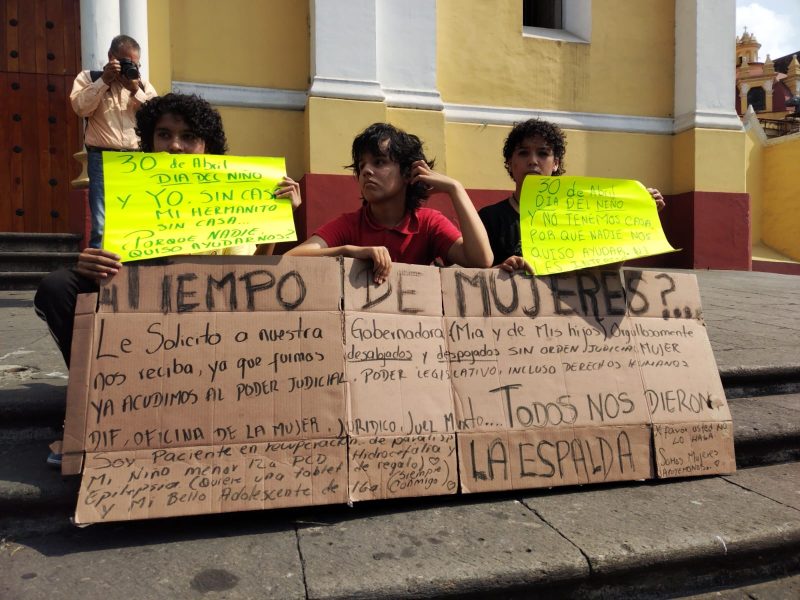 30 Abril
DIA DEL NIÑO
y YO. SIN CASA
MI HERMANITO
SIN CASA...
¿PORQUE NADIE
QUISO AYUDARNOS?
30 de Abril
DIA DEL NIÑO
Y NO TENEMOS CASA.
POR QUE NADIE NOS
QUISO AYUDAR.
¿TIEMPO DE MUJERES?...
Le Solicito a nuestra Gobernadora (Mia y de Mis hijos) Orgullosamente
nos reciba, ya que fuimos desalojados y despojados SIN ORDEN JUDICIAL MUJER
YA ACUDIMOS AL PODER JUDICIAL, PODER LEGISLATIVO, INCLUSO DERECHOS HUMANOS
DIF, OFICINA DE LA MUJER, JURIDICO, JUEZ Mixto.... TODOS NOS DIERON
LA ESPALDA
X favor usted NO
LO HAGA
Somos Mujeres
Soy Paciente en recuperación de paralisis
Mi Niño menor 12a PCD Hidrocefalia y
Epilepsia (Quiere una tablet de regalo)
y Mi Bello Adolescente de 16a (Siempre Conmigo)